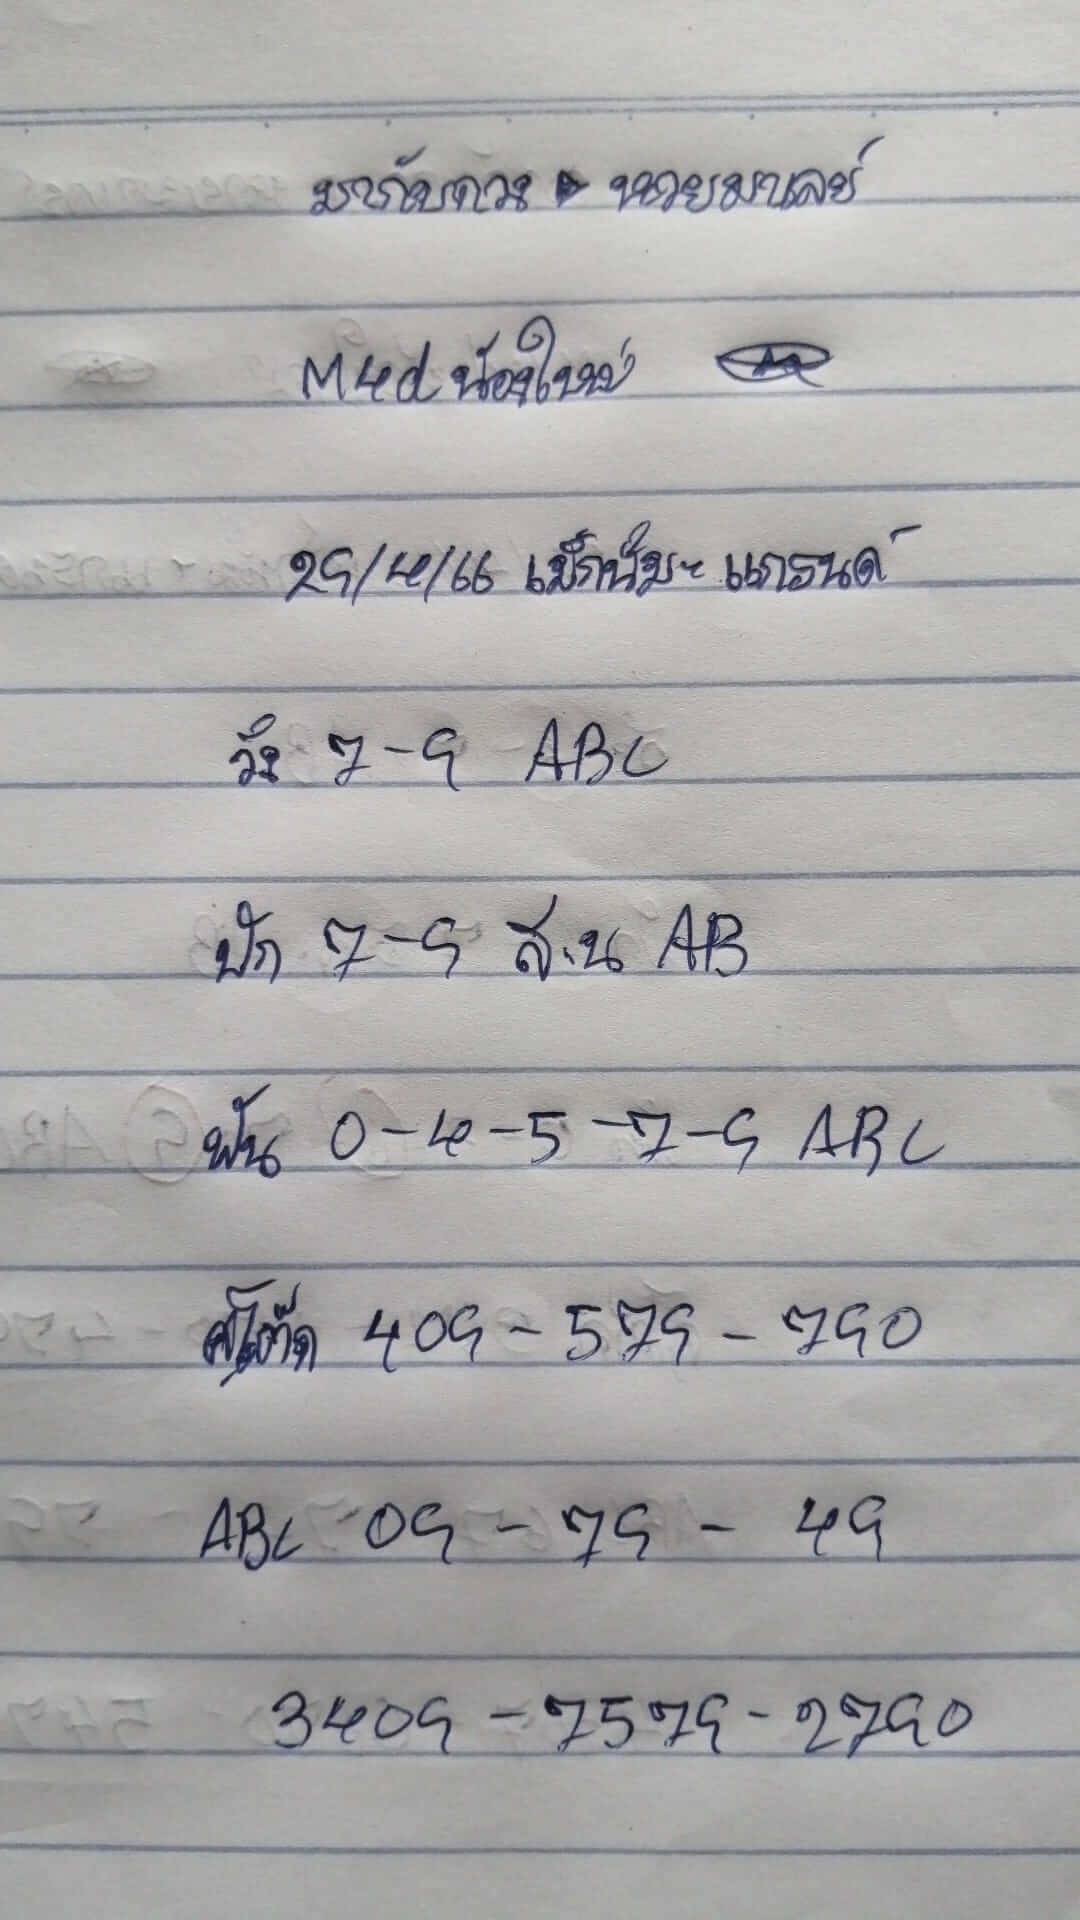 มากับดวง หวยมาเลย์
M4d น้องใหม่
29/4/66 แม็กนั่ม - แกรนด์
วิ่ง 7-9 ABC
ปัก 7-9 ส.น AB
ฟัน 0-4-5-7-9 ABC
โต๊ด 409 - 579 - 790
ABC 09 - 79 - 49
3409 - 7579 - 2790